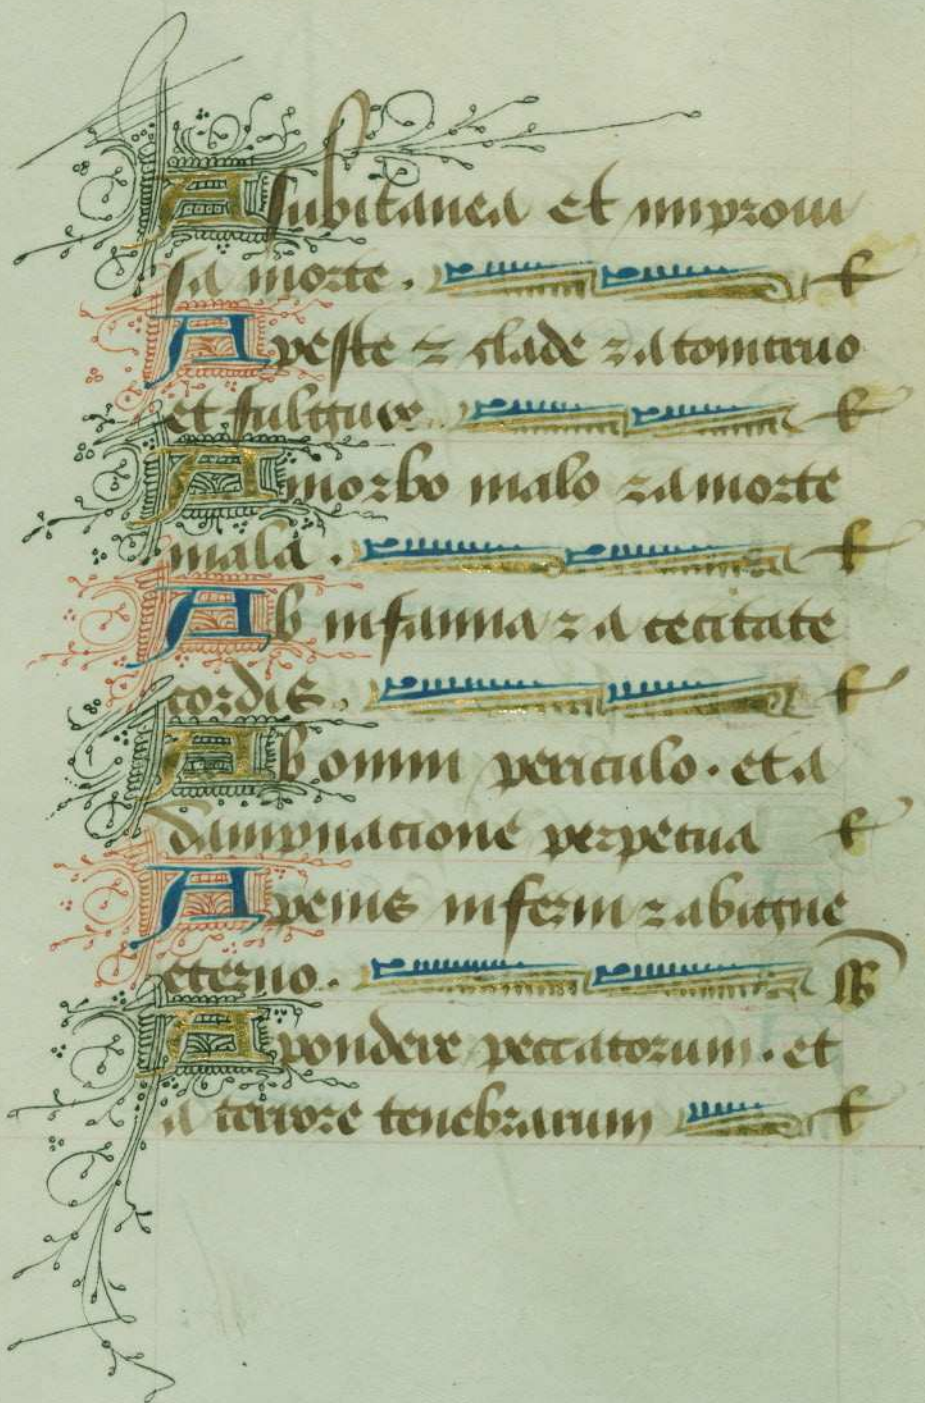 A subitanea et improui
sa morte. l
A peste ⁊ clade ⁊ a tonitruo
et fulgure. l
A morbo malo ⁊ a morte
mala. l
Ab insania ⁊ a cecitate
cordis. l
Ab omni periculo. et a
dampnacione perpetua l
A penis inferni ⁊ ab igne
eterno.
A pondere peccatorum. et
a terrore tenebrarum l